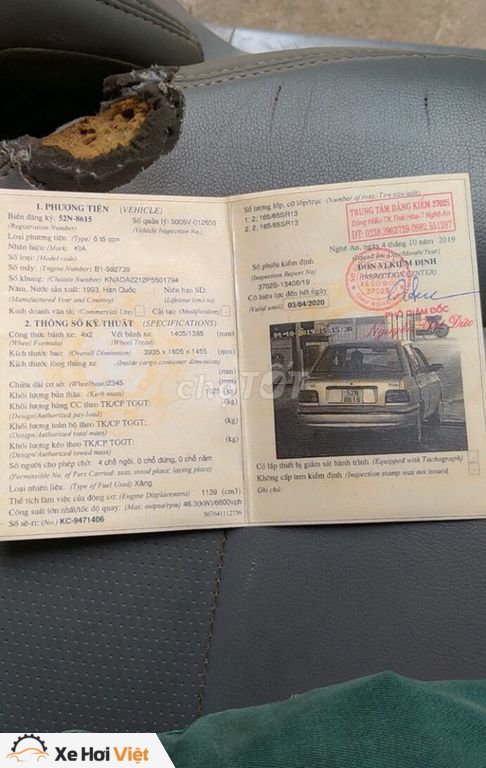 1. PHƯƠNG TIỆN (VEHICLE)
Biển đăng ký: 52N-8615 Số quản lý: 5005V-012655
(Registration Number) (Vehicle Inspection No.)
Loại phương tiện: (Type) ô tô con
Nhãn hiệu: (Mark) KIA
Số loại: (Model code)
Số máy: (Engine Number) B1-592739
Số khung: (Chassis Number) KNADA2212P5501794
Năm, Nước sản xuất: 1993, Hàn Quốc Niên hạn SD:
(Manufactured Year and Country) (Lifetime limit to)
Kinh doanh vận tải (Commercial Use) Cải tạo (Modification)
2. THÔNG SỐ KỸ THUẬT (SPECIFICATIONS)
Công thức bánh xe: 4x2 Vết bánh xe: 1405/1385 (mm)
(Wheel Formula) (Wheel Tread)
Kích thước bao: (Overall Dimension) 3935 x 1605 x 1455 (mm)
Kích thước lòng thùng xe (Inside cargo container dimension)
(mm)
Chiều dài cơ sở: (Wheelbase) 2345 (mm)
Khối lượng bản thân: (Kerb mass) (kg)
Khối lượng hàng CC theo TK/CP TGGT: (kg)
(Design/Authorized pay load)
Khối lượng toàn bộ theo TK/CP TGGT: (kg)
(Design/Authorized total mass)
Khối lượng kéo theo TK/CP TGGT: (kg)
(Design/Authorized towed mass)
Số người cho phép chở: 4 chỗ ngồi, 0 chỗ đứng, 0 chỗ nằm
(Permissible No. of Pers Carried: seat, stood place, laying place)
Loại nhiên liệu: (Type of Fuel Used) Xăng
Thể tích làm việc của động cơ: (Engine Displacement) 1139 (cm3)
Công suất lớn nhất/tốc độ quay: (Max. output/rpm) 46.3(kW)/6600vph
Số sê-ri: (No.) KC-9471406 367641112756
Số lượng lốp, cỡ lốp/trục (Number of tires; Tire size/axle)
1: 2; 165/65SR13
2: 2; 165/65SR13
TRUNG TÂM ĐĂNG KIỂM 3702S
Đông Hiếu-TX.Thái Hòa-T Nghệ An
ĐT: 0238.3962729-0982.551387
Nghệ An, ngày 4 tháng 10 năm 2019
(Issued on: Day/Month/Year)
Số phiếu kiểm định ĐƠN VỊ KIỂM ĐỊNH
(Inspection Report No) (INSPECTION CENTER)
3702S-13406/19
Có hiệu lực đến hết ngày
(Valid until) 03/04/2020
3702S
PHÓ GIÁM ĐỐC
04-10-2019
52N
8615
chợTỐT
Có lắp thiết bị giám sát hành trình (Equipped with Tachograph)
Không cấp tem kiểm định (Inspection stamp was not issued)
Ghi chú:
Xe Hơi Việt